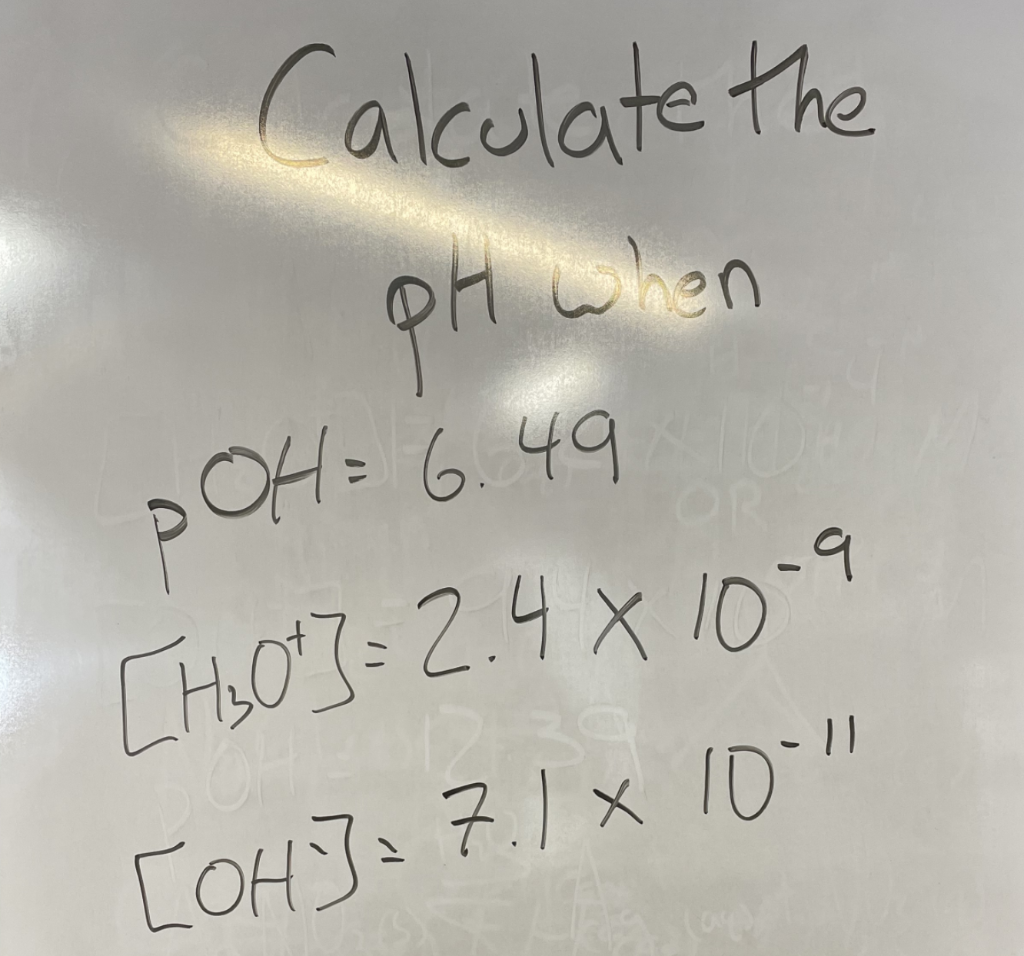 Calculate the
pH when
pOH = 6.49
[H₃O⁺] = 2.4 × 10⁻⁹
[OH⁻] = 7.1 × 10⁻¹¹